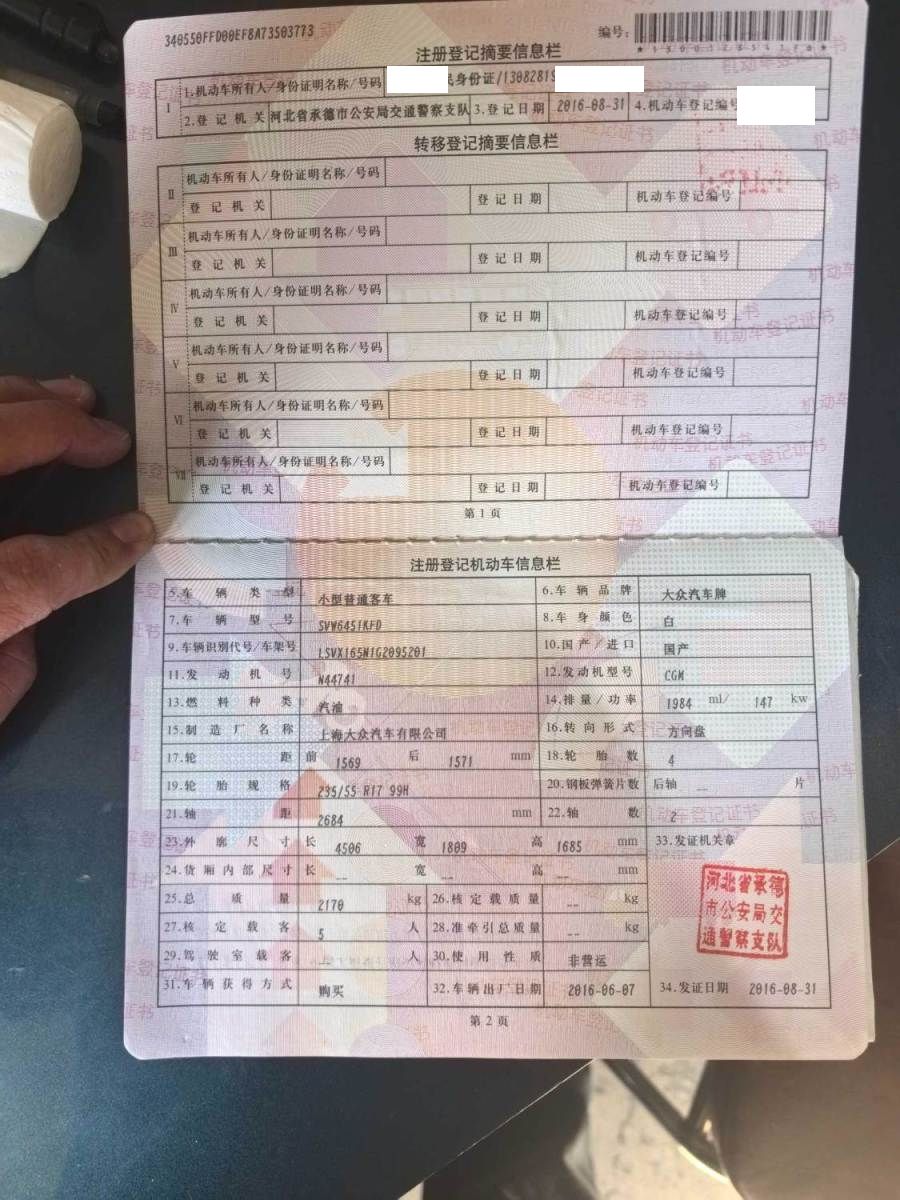 340550FFD00EF8A73503773
编号:
注册登记摘要信息栏
I 1.机动车所有人/身份证明名称/号码 民身份证/13082819
2.登记机关 河北省承德市公安局交通警察支队 3.登记日期 2016-08-31 4.机动车登记编号
转移登记摘要信息栏
II 机动车所有人/身份证明名称/号码
登记机关 登记日期 机动车登记编号
III 机动车所有人/身份证明名称/号码
登记机关 登记日期 机动车登记编号
IV 机动车所有人/身份证明名称/号码
登记机关 登记日期 机动车登记编号
V 机动车所有人/身份证明名称/号码
登记机关 登记日期 机动车登记编号
VI 机动车所有人/身份证明名称/号码
登记机关 登记日期 机动车登记编号
VII 机动车所有人/身份证明名称/号码
登记机关 登记日期 机动车登记编号
第1页
注册登记机动车信息栏
5.车辆类型 小型普通客车 6.车辆品牌 大众汽车牌
7.车辆型号 SVW6451KFD 8.车身颜色 白
9.车辆识别代号/车架号 LSVX165N1G2095201 10.国产/进口 国产
11.发动机号 N44741 12.发动机型号 CGM
13.燃料种类 汽油 14.排量/功率 1984 ml/ 147 kw
15.制造厂名称 上海大众汽车有限公司 16.转向形式 方向盘
17.轮距 前 1569 后 1571 mm 18.轮胎数 4
19.轮胎规格 235/55 R17 99H 20.钢板弹簧片数 后轴 -- 片
21.轴距 2684 mm 22.轴数 2
23.外廓尺寸 长 4506 宽 1809 高 1685 mm 33.发证机关章
24.货厢内部尺寸 长 -- 宽 -- 高 -- mm
25.总质量 2170 kg 26.核定载质量 -- kg
27.核定载客 5 人 28.准牵引总质量 -- kg
河北省承德
市公安局交
通警察支队
29.驾驶室载客 -- 人 30.使用性质 非营运
31.车辆获得方式 购买 32.车辆出厂日期 2016-06-07 34.发证日期 2016-08-31
第2页